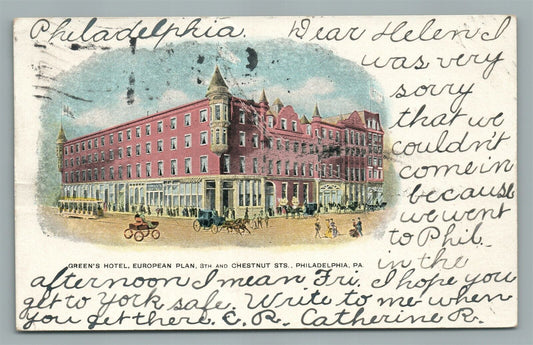 Philadelphia.
Dear Helen I
was very
sorry
that we
couldn't
come in
because
we went
to Phil.
in the
GREEN'S HOTEL, EUROPEAN PLAN, 8TH AND CHESTNUT STS., PHILADELPHIA, PA.
afternoon I mean Fri. I hope you
get to York safe. Write to me when
you get there. C. R. Catherine R.